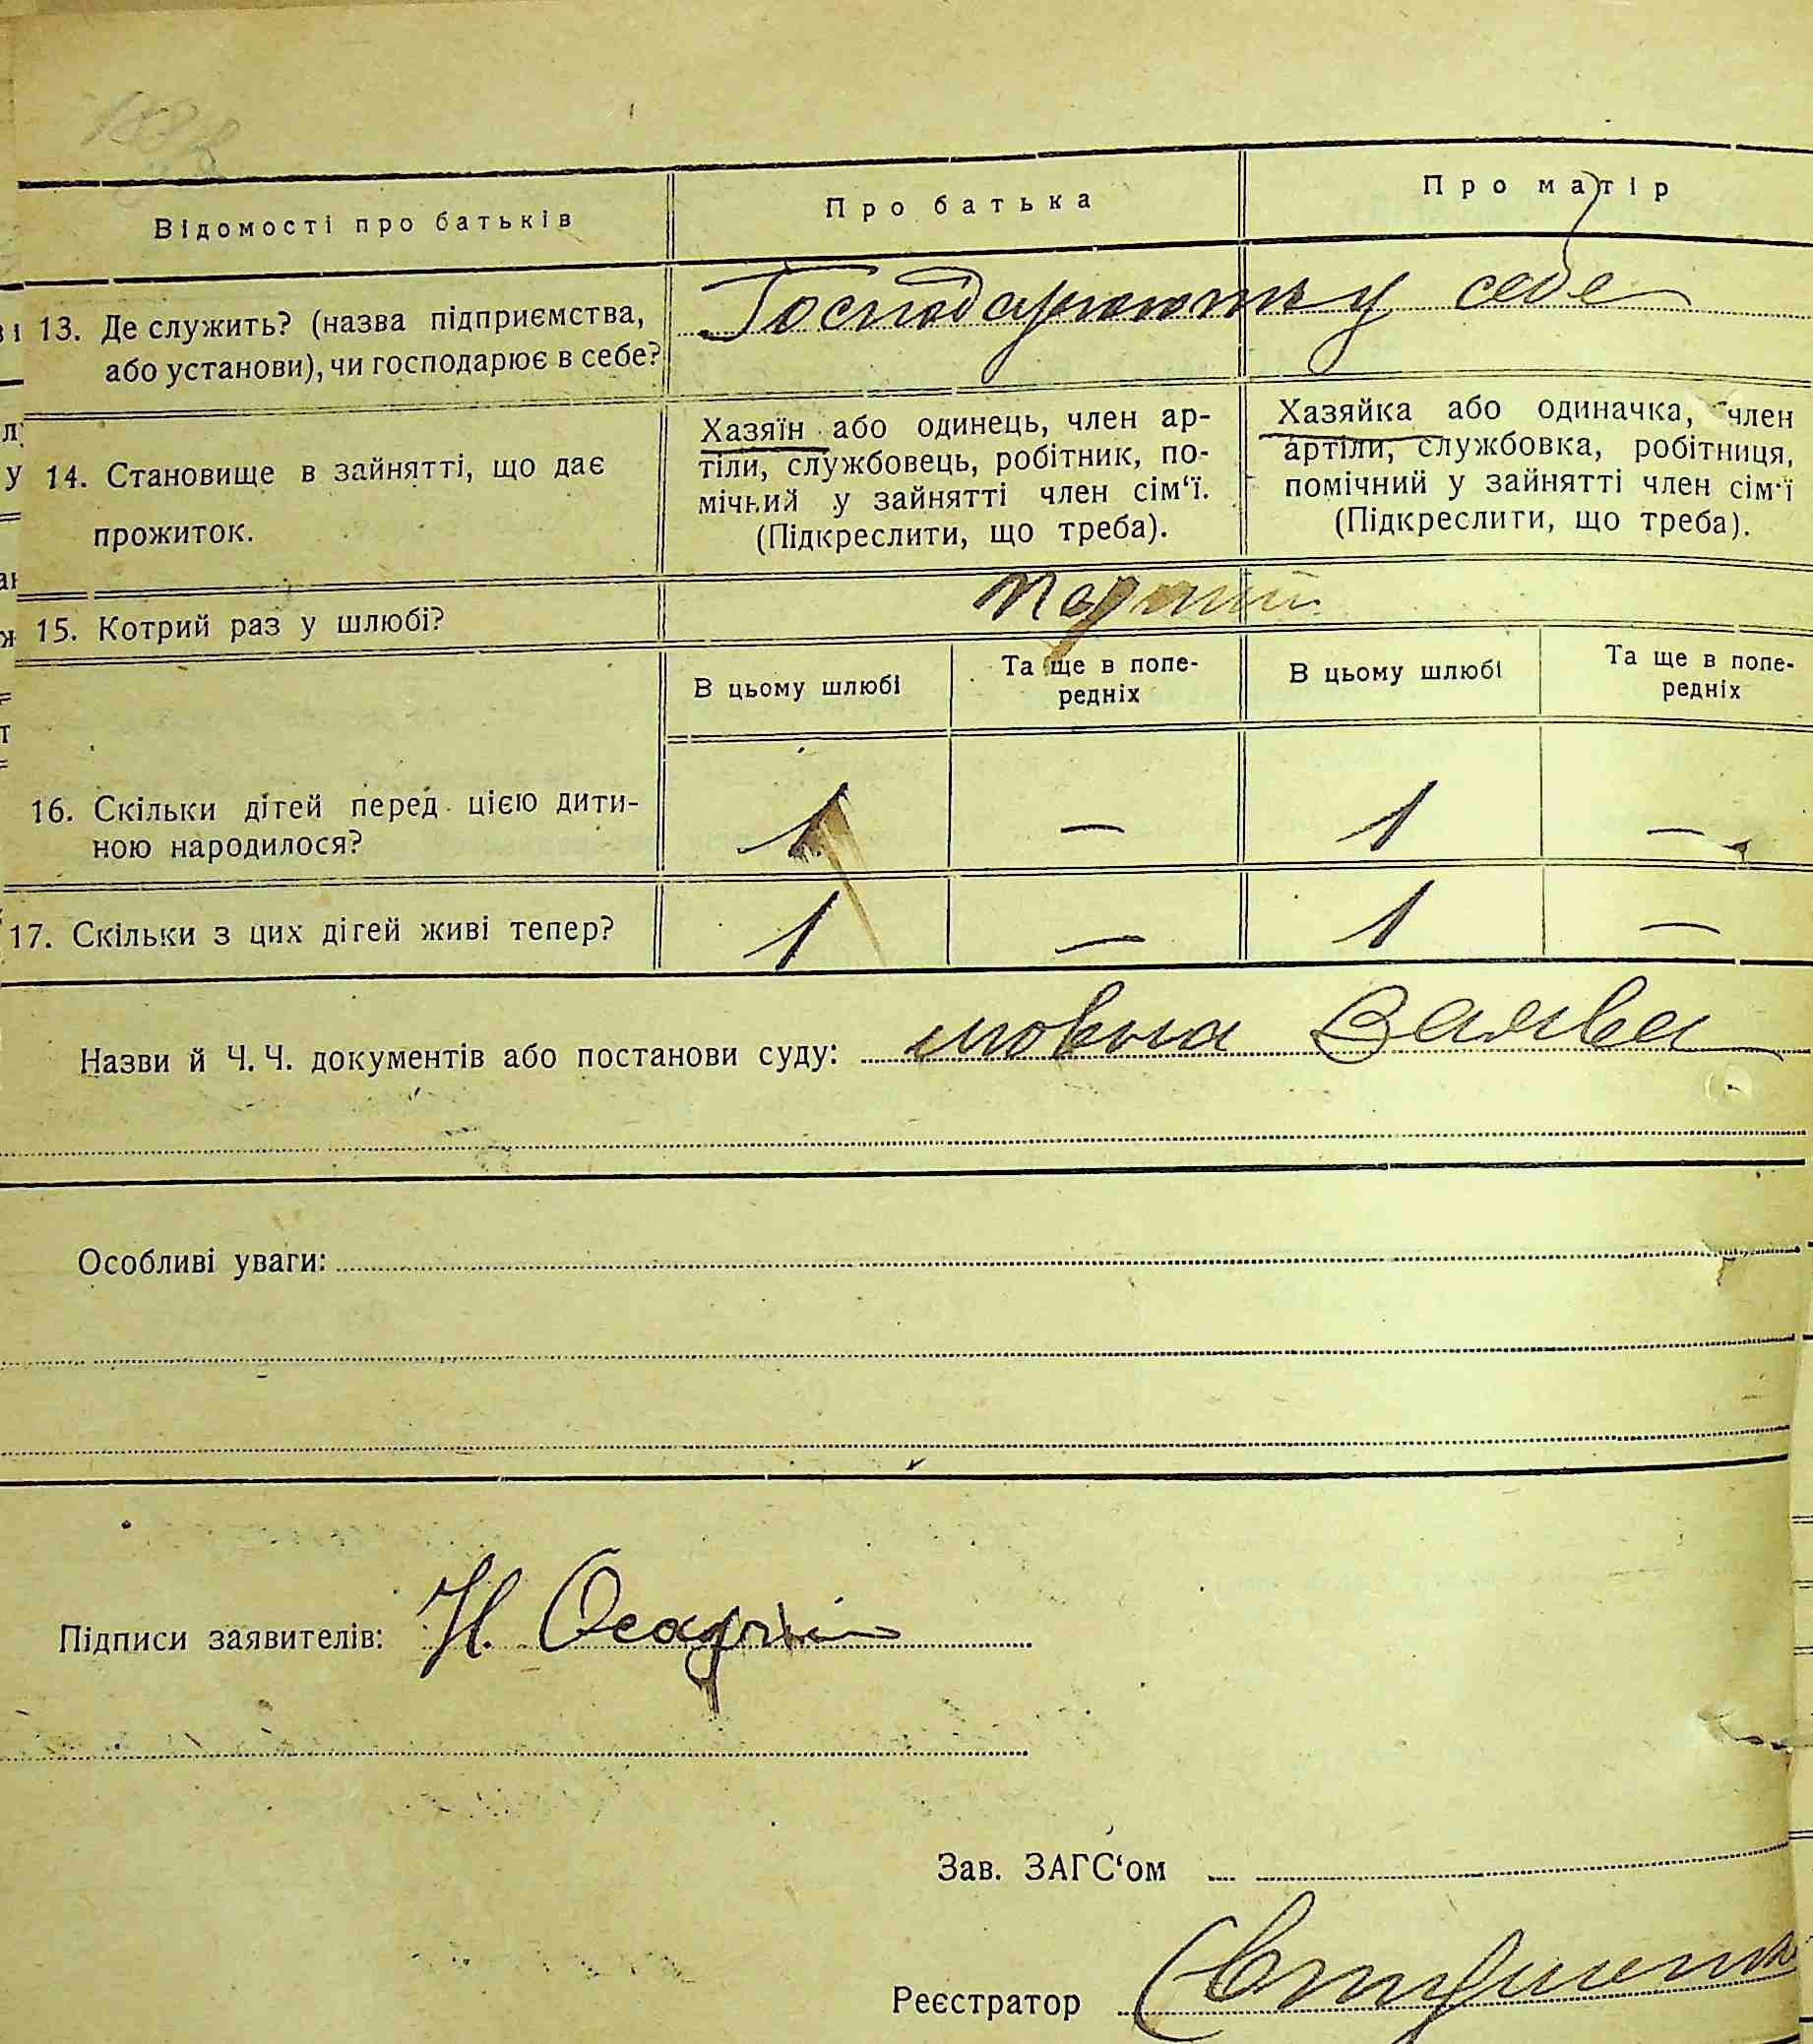 Відомості про батьків
Про батька
Про матір
13. Де служить? (назва підприємства,
або установи), чи господарює в себе?
Господарюють у себе
14. Становище в зайнятті, що дає
прожиток.
Хазяїн або одинець, член ар-
тіли, службовець, робітник, по-
мічний у зайнятті член сім‘ї.
(Підкреслити, що треба).
Хазяйка або одиначка, член
артіли, службовка, робітниця,
помічний у зайнятті член сім‘ї
(Підкреслити, що треба).
15. Котрий раз у шлюбі?
Перший
В цьому шлюбі
Та ще в попе-
редніх
В цьому шлюбі
Та ще в попе-
редніх
16. Скільки дітей перед цією дити-
ною народилося?
1 — 1 —
17. Скільки з цих дітей живі тепер?
1 — 1 —
Назви й Ч. Ч. документів або постанови суду: мовна Заява
Особливі уваги:
Підписи заявителів: Н.
Зав. ЗАГС‘ом
Реєстратор